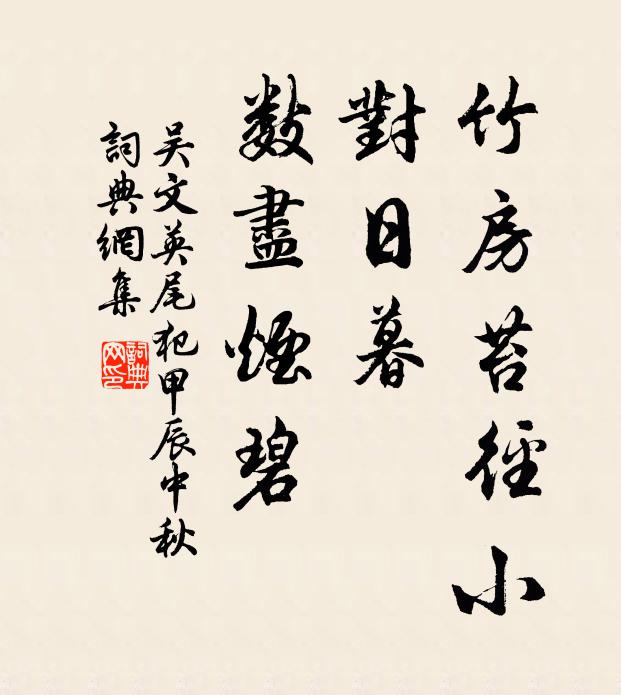 竹房苔徑小
對日暮
數盡煙碧
吴文英尾犯甲辰中秋
詞典網集
詞典網印